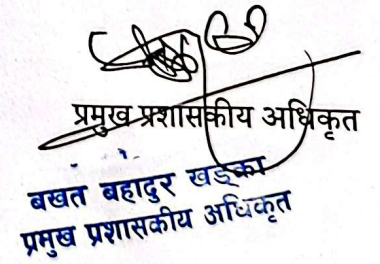 प्रमुख प्रशासकीय अधिकृत
बखत बहादुर खड्का
प्रमुख प्रशासकीय अधिकृत